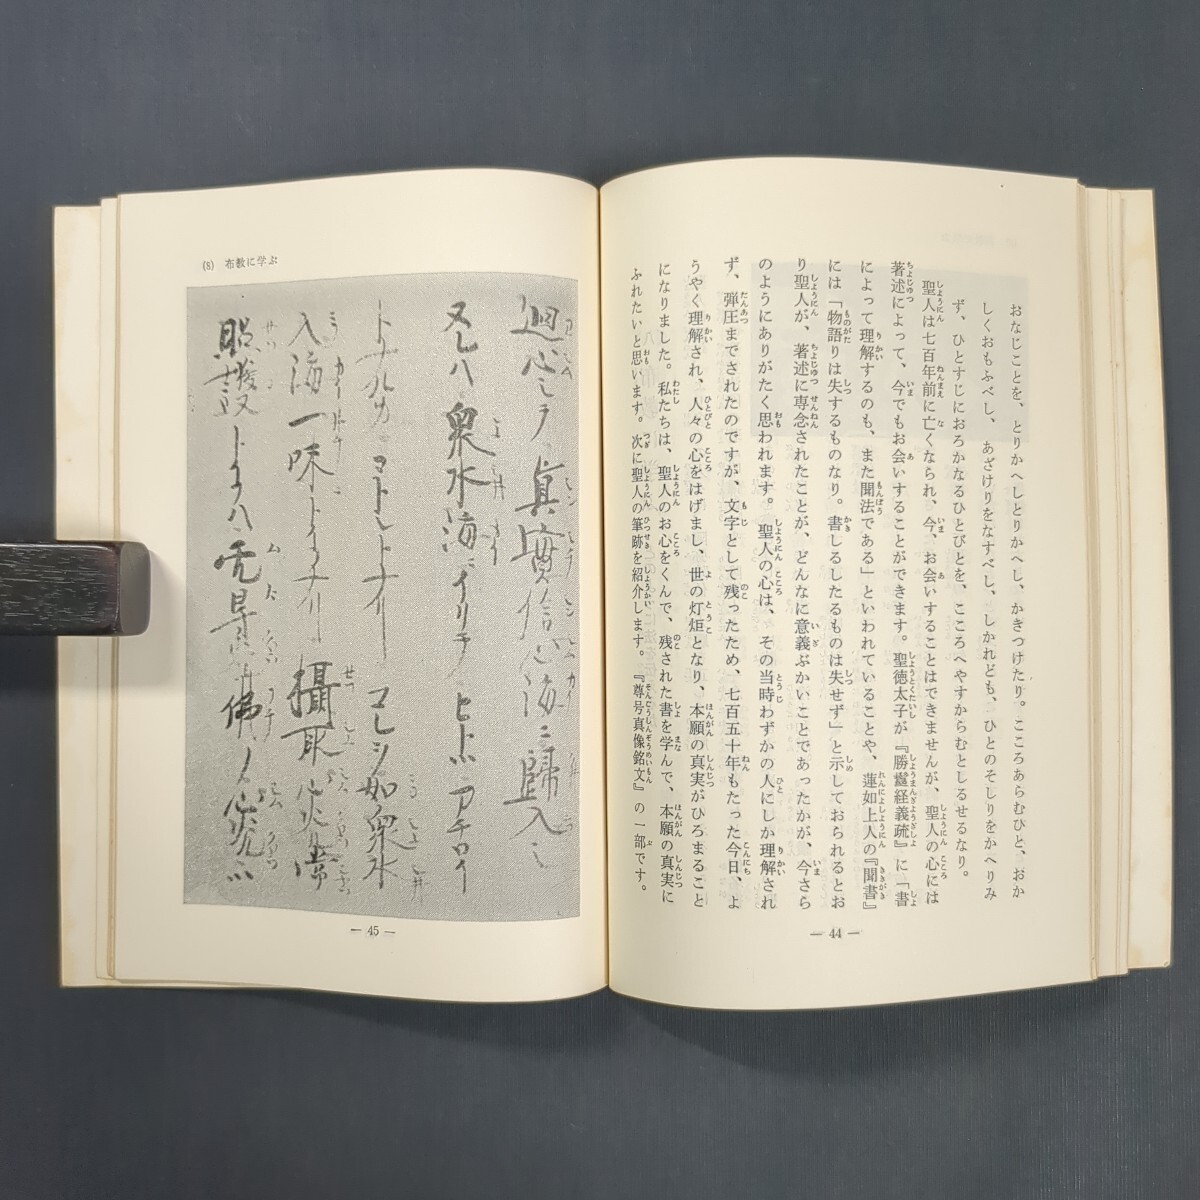 おなじことを、とりかへしとりかへし、かきつけたり。こころあらむひと、おか
しくおもふべし、あざけりをなすべし、しかれども、ひとのそしりをかへりみ
ず、ひとすじにおろかなるひとびとを、こころへやすからむとしるせるなり。
聖人は七百年前に亡くなられ、今、お会いすることはできませんが、聖人の心には
著述によって、今でもお会いすることができます。聖徳太子が『勝鬘経義疏』に「書
によって理解するのも、また聞法である」といわれていることや、蓮如上人の『聞書』
には「物語りは失するものなり。書しるしたるものは失せず」と示しておられるとお
り聖人が、著述に専念されたことが、どんなに意義ぶかいことであったかが、今さら
のようにありがたく思われます。聖人の心は、その当時わずかの人にしか理解され
ず、弾圧までされたのですが、文字として残ったため、七百五十年もたった今日、よ
うやく理解され、人々の心をはげまし、世の灯炬となり、本願の真実がひろまること
になりました。私たちは、聖人のお心をくんで、残された書を学んで、本願の真実に
ふれたいと思います。次に聖人の筆跡を紹介します。『尊号真像銘文』の一部です。
— 44 —
(8) 布教に学ぶ
廻心シテ眞實信心海ニ歸入シ
又レハ衆水海ニイリテヒトアチワイ
トナルカコトシトナリコレヲ如衆水
入海一味トイフナリ攝取心光常
照護トイフハ无㝵光佛ノ心光
— 45 —